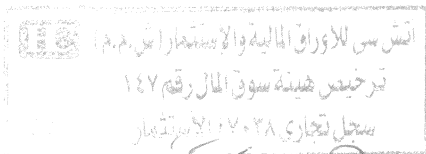 اتش سى للأوراق المالية والإستثمار (ش.م.م)
ترخيص هيئة سوق المال رقم ١٤٧
سجل تجاري ٠٧٠٣٨ الإستثمار